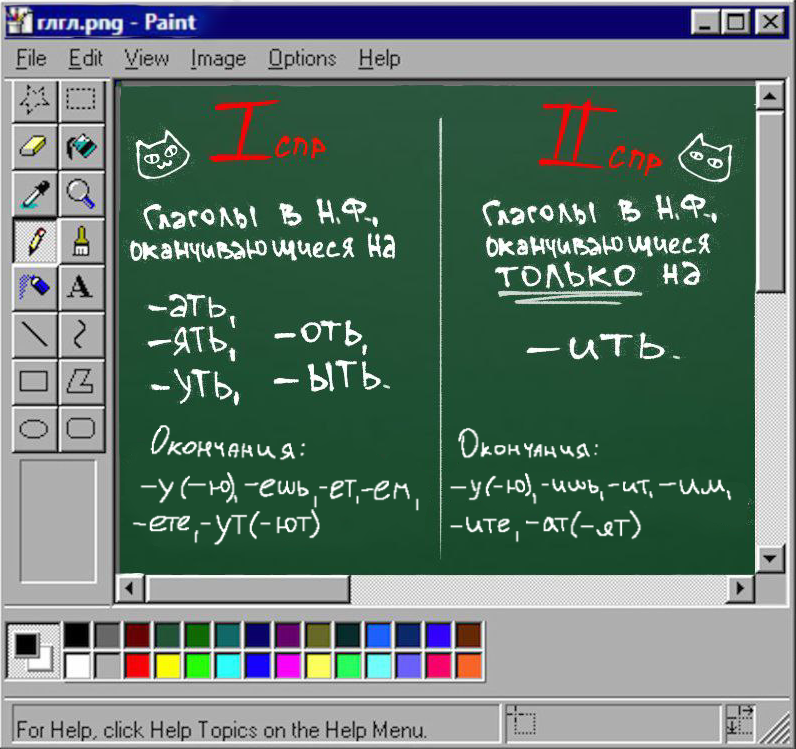 глгл.png - Paint
File Edit View Image Options Help
I спр
Глаголы в Н.Ф.,
оканчивающиеся на
-ать,
-ять, -оть,
-уть, -ыть.
Окончания:
-у(-ю), -ешь, -ет, -ем,
-ете, -ут(-ют)
II спр
Глаголы в Н.Ф.,
оканчивающиеся
ТОЛЬКО на
-ить.
Окончания:
-у(-ю), -ишь, -ит, -им,
-ите, -ат(-ят)
A
For Help, click Help Topics on the Help Menu.